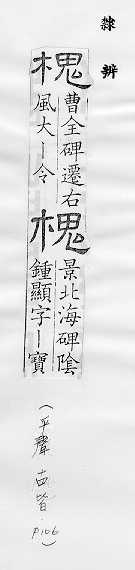 隸辨
槐
曹全碑遷右
風大丨令
槐
景北海碑陰
鍾顯字丨寶
(平聲 古皆
P106)